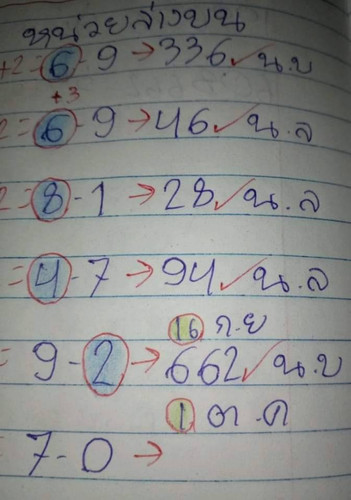 หน่วยล่างบน
+2=6-9→336✓น.บ
+3
2=6-9→46✓น.ล
2=8-1→28✓น.ล
=4-7→94✓น.ล
16 ก.ย
=9-2→662✓น.บ
1 ต.ค
=7-0→